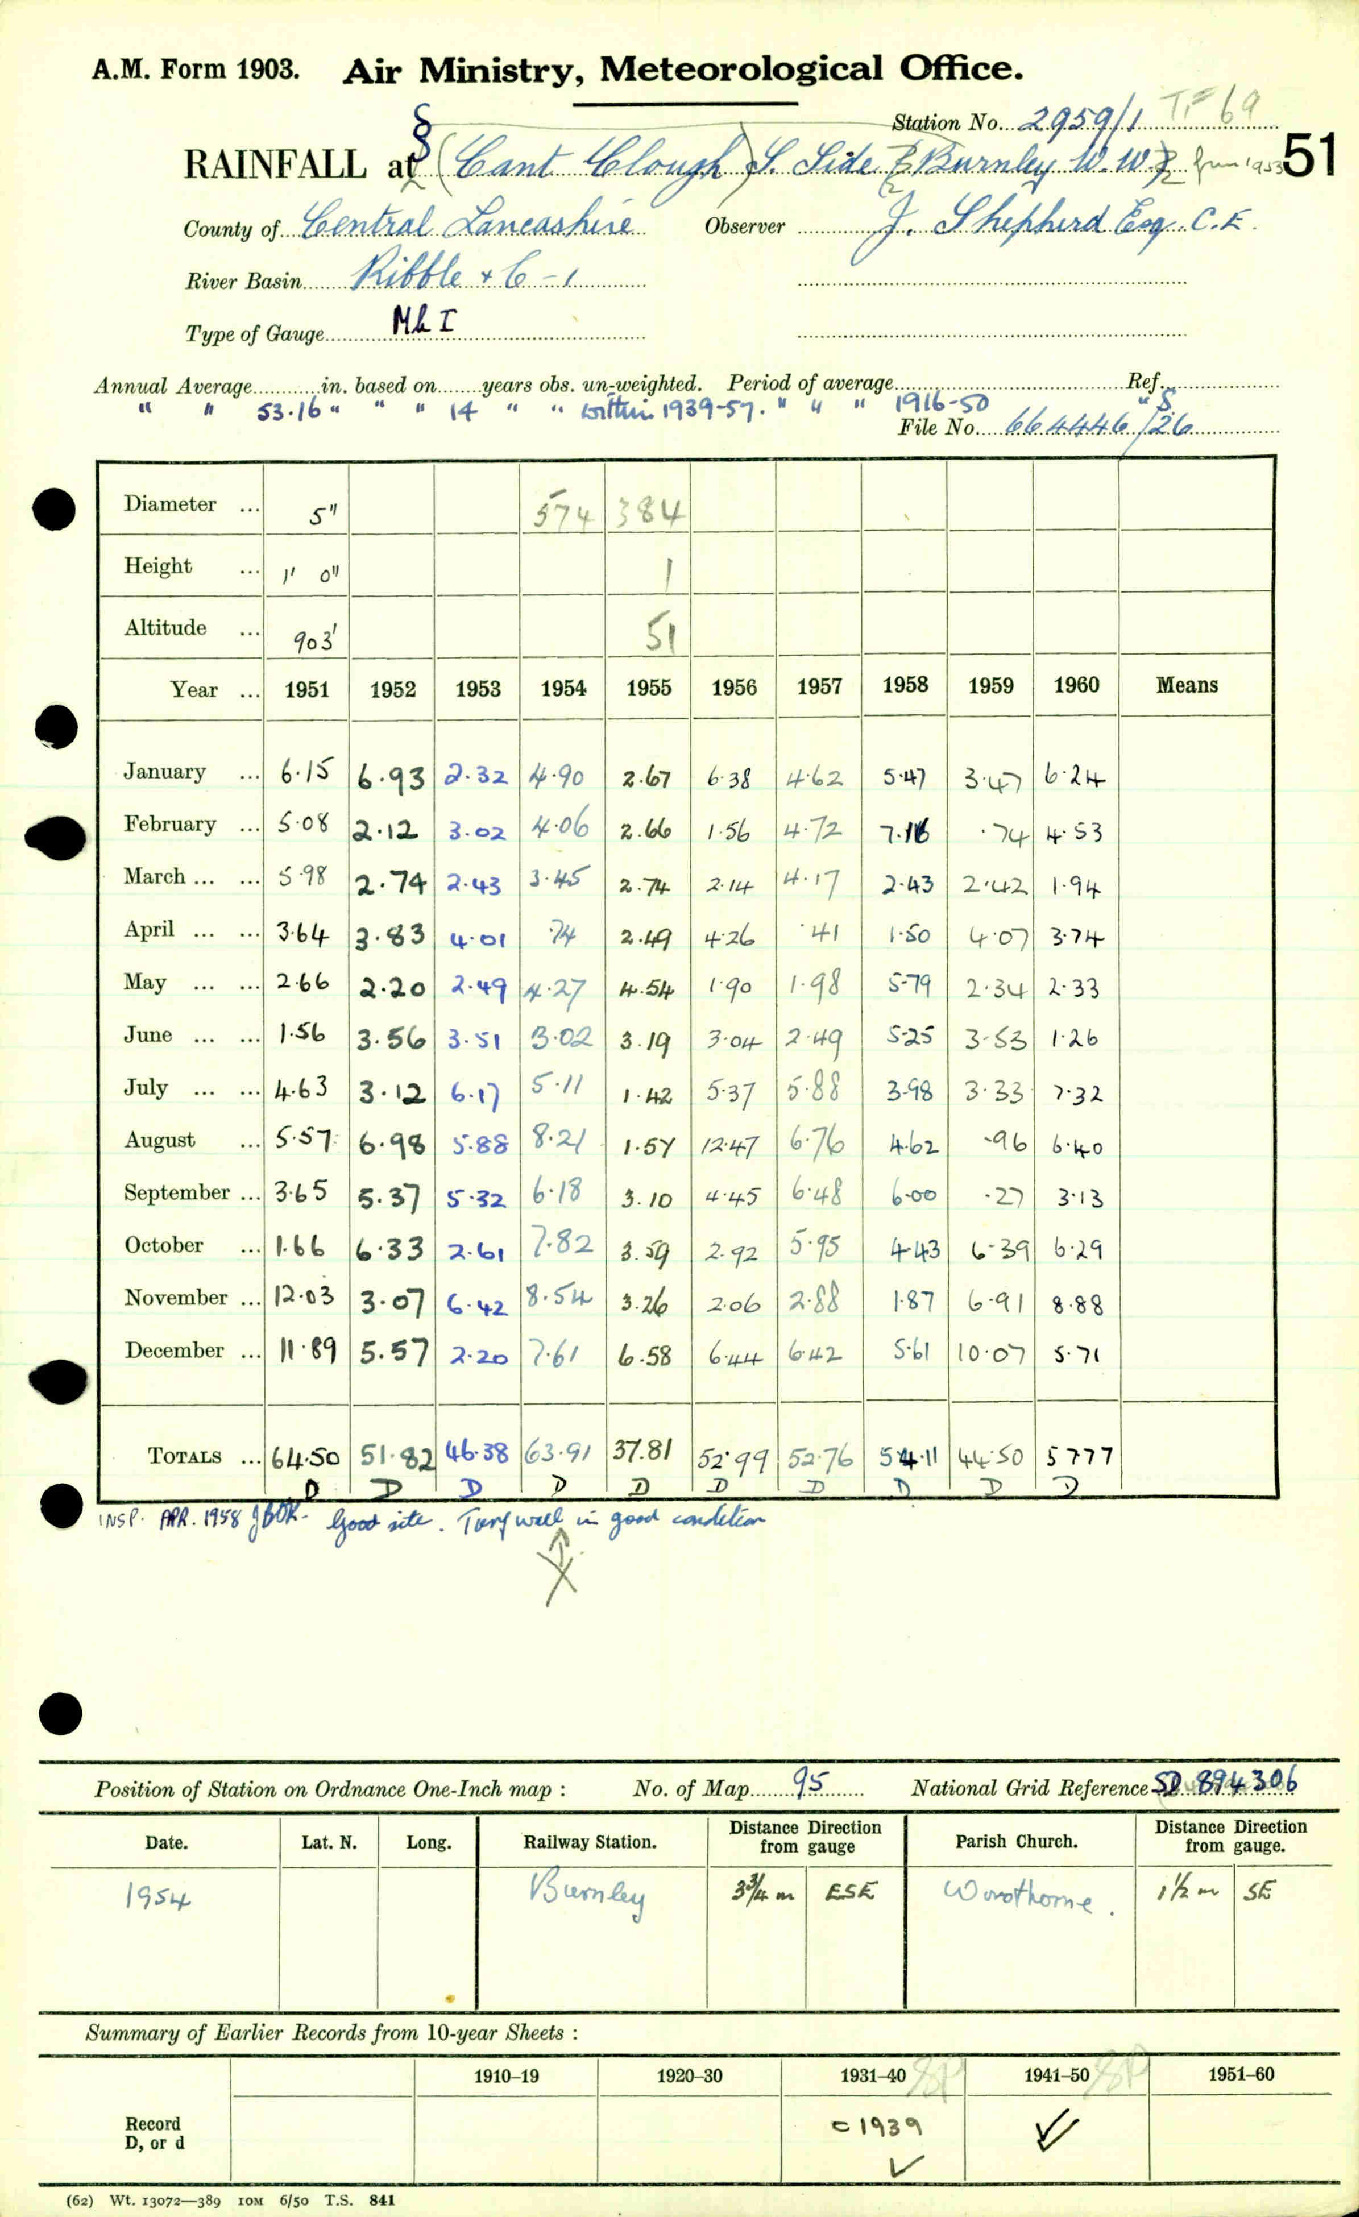 A.M. Form 1903. Air Ministry, Meteorological Office.
Station No. 2959/1 TF 69
RAINFALL at § (Cant Clough) S. Side Burnley W.W. from 1953 51
County of Central Lancashire Observer J. Shepherd Esq. C.E.
River Basin Ribble + C-1
Type of Gauge Mk I
Annual Average in. based on years obs. un-weighted. Period of average Ref.
" " 53.16 " " " 14 " " within 1939-57. " " " 1916-50 " S.
File No. 664446/26
Diameter ... 5" 574 384
Height ... 1' 0" 1
Altitude ... 903' 51
Year ... 1951 1952 1953 1954 1955 1956 1957 1958 1959 1960 Means
January ... 6.15 6.93 2.32 4.90 2.67 6.38 4.62 5.47 3.47 6.24
February ... 5.08 2.12 3.02 4.06 2.66 1.56 4.72 7.16 .74 4.53
March ... ... 5.98 2.74 2.43 3.45 2.74 2.14 4.17 2.43 2.42 1.94
April ... ... 3.64 3.83 4.01 .74 2.49 4.26 .41 1.50 4.07 3.74
May ... ... 2.66 2.20 2.49 4.27 4.54 1.90 1.98 5.79 2.34 2.33
June ... ... 1.56 3.56 3.51 3.02 3.19 3.04 2.49 5.25 3.53 1.26
July ... ... 4.63 3.12 6.17 5.11 1.42 5.37 5.88 3.98 3.33 7.32
August ... 5.57 6.98 5.88 8.21 1.57 12.47 6.76 4.62 .96 6.40
September ... 3.65 5.37 5.32 6.18 3.10 4.45 6.48 6.00 .27 3.13
October ... 1.66 6.33 2.61 7.82 3.59 2.92 5.95 4.43 6.39 6.29
November ... 12.03 3.07 6.42 8.54 3.26 2.06 2.88 1.87 6.91 8.88
December ... 11.89 5.57 2.20 7.61 6.58 6.44 6.42 5.61 10.07 5.71
TOTALS ... 64.50 51.82 46.38 63.91 37.81 52.99 52.76 54.11 44.50 57.77
D D D D D D D D D D
INSP. APR. 1958 Good site. Turf wall in good condition
Position of Station on Ordnance One-Inch map : No. of Map 95 National Grid Reference SD 894306
Date. Lat. N. Long. Railway Station. Distance from Direction gauge Parish Church. Distance from Direction gauge.
1954 Burnley 3¾ m ESE Worsthorne. 1½ m SE
Summary of Earlier Records from 10-year Sheets :
1910–19 1920–30 1931–40 1941–50 1951–60
Record D, or d c 1939 ✓ ✓
(62) Wt. 13072—389 IOM 6/50 T.S. 841